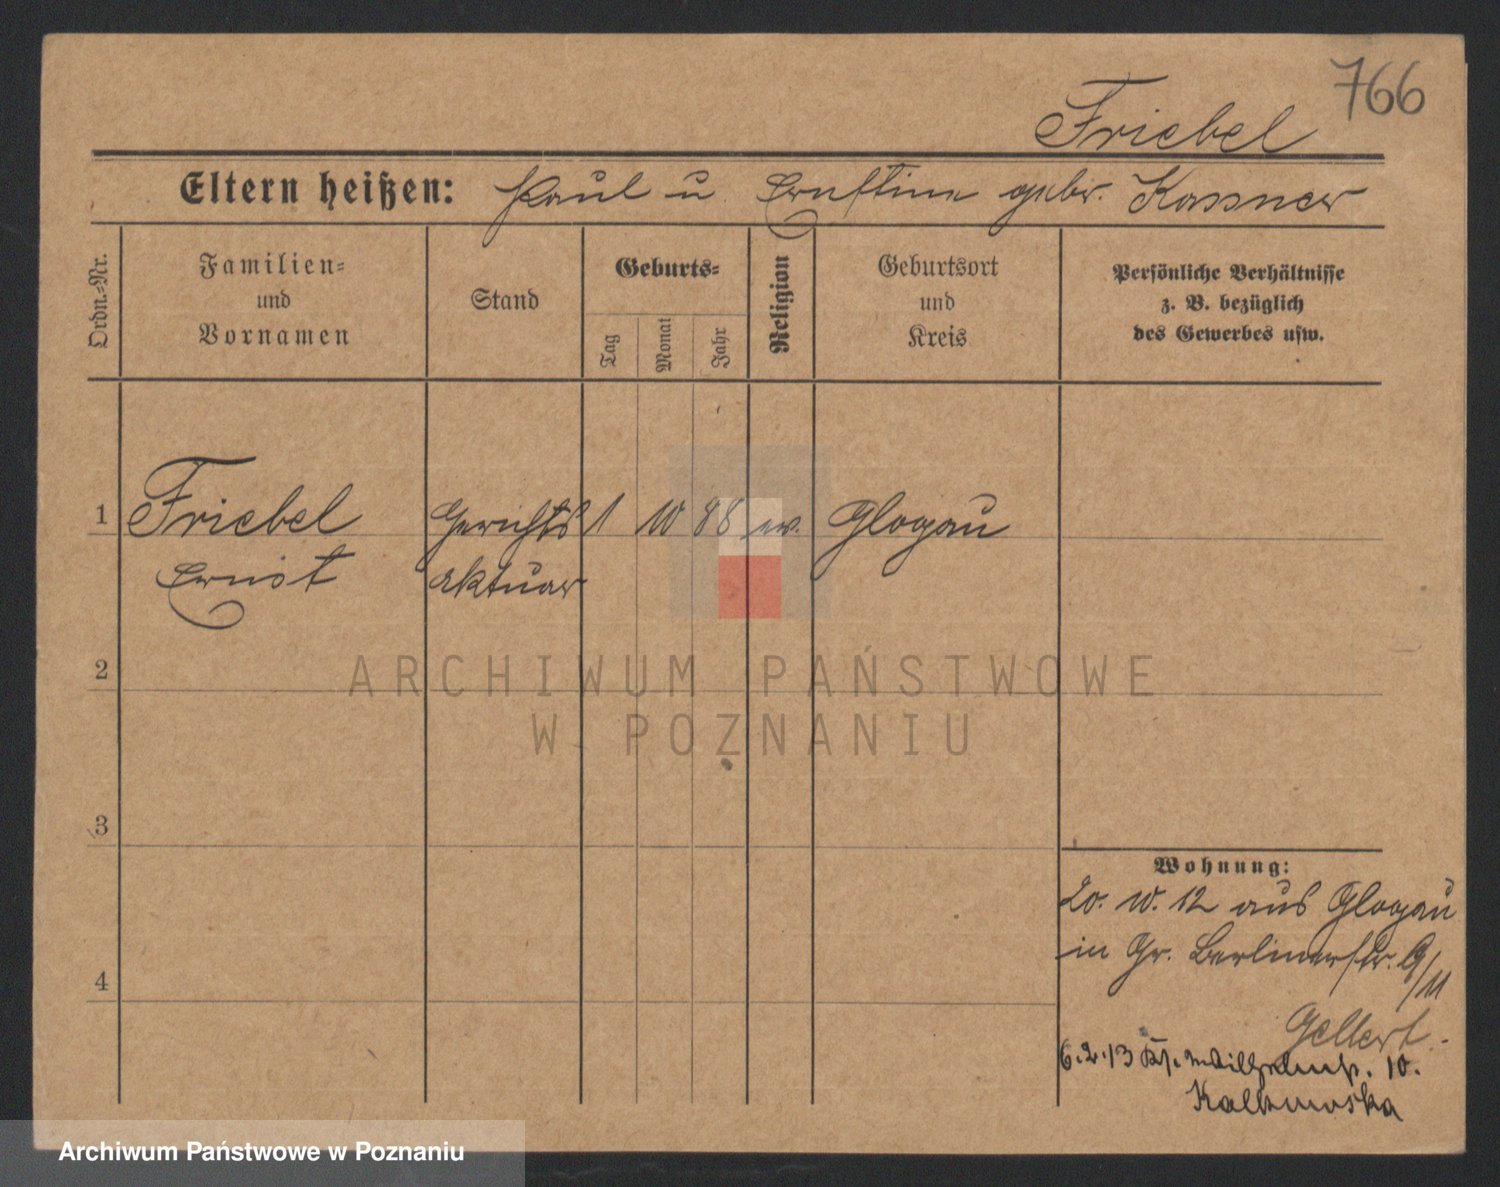 766
Friebel
Eltern heißen: Paul u Ernstine gebr. Kassner
Ordn.=Nr.
Familien=
und
Vornamen
Stand
Geburts=
Tag
Monat
Jahr
Religion
Geburtsort
und
Kreis
Persönliche Verhältnisse
z. B. bezüglich
des Gewerbes usw.
1 Friebel Gerichts 1 10 88 ev. Glogau
Ernst aktuar
2
3
4
Wohnung:
20. 10. 12 aus Glogau
in Gr. Berlinerstr. 9/11
Gellert.
6.2.13 Wilhelmstr. 10.
Kalkowska
ARCHIWUM PAŃSTWOWE
W POZNANIU
Archiwum Państwowe w Poznaniu